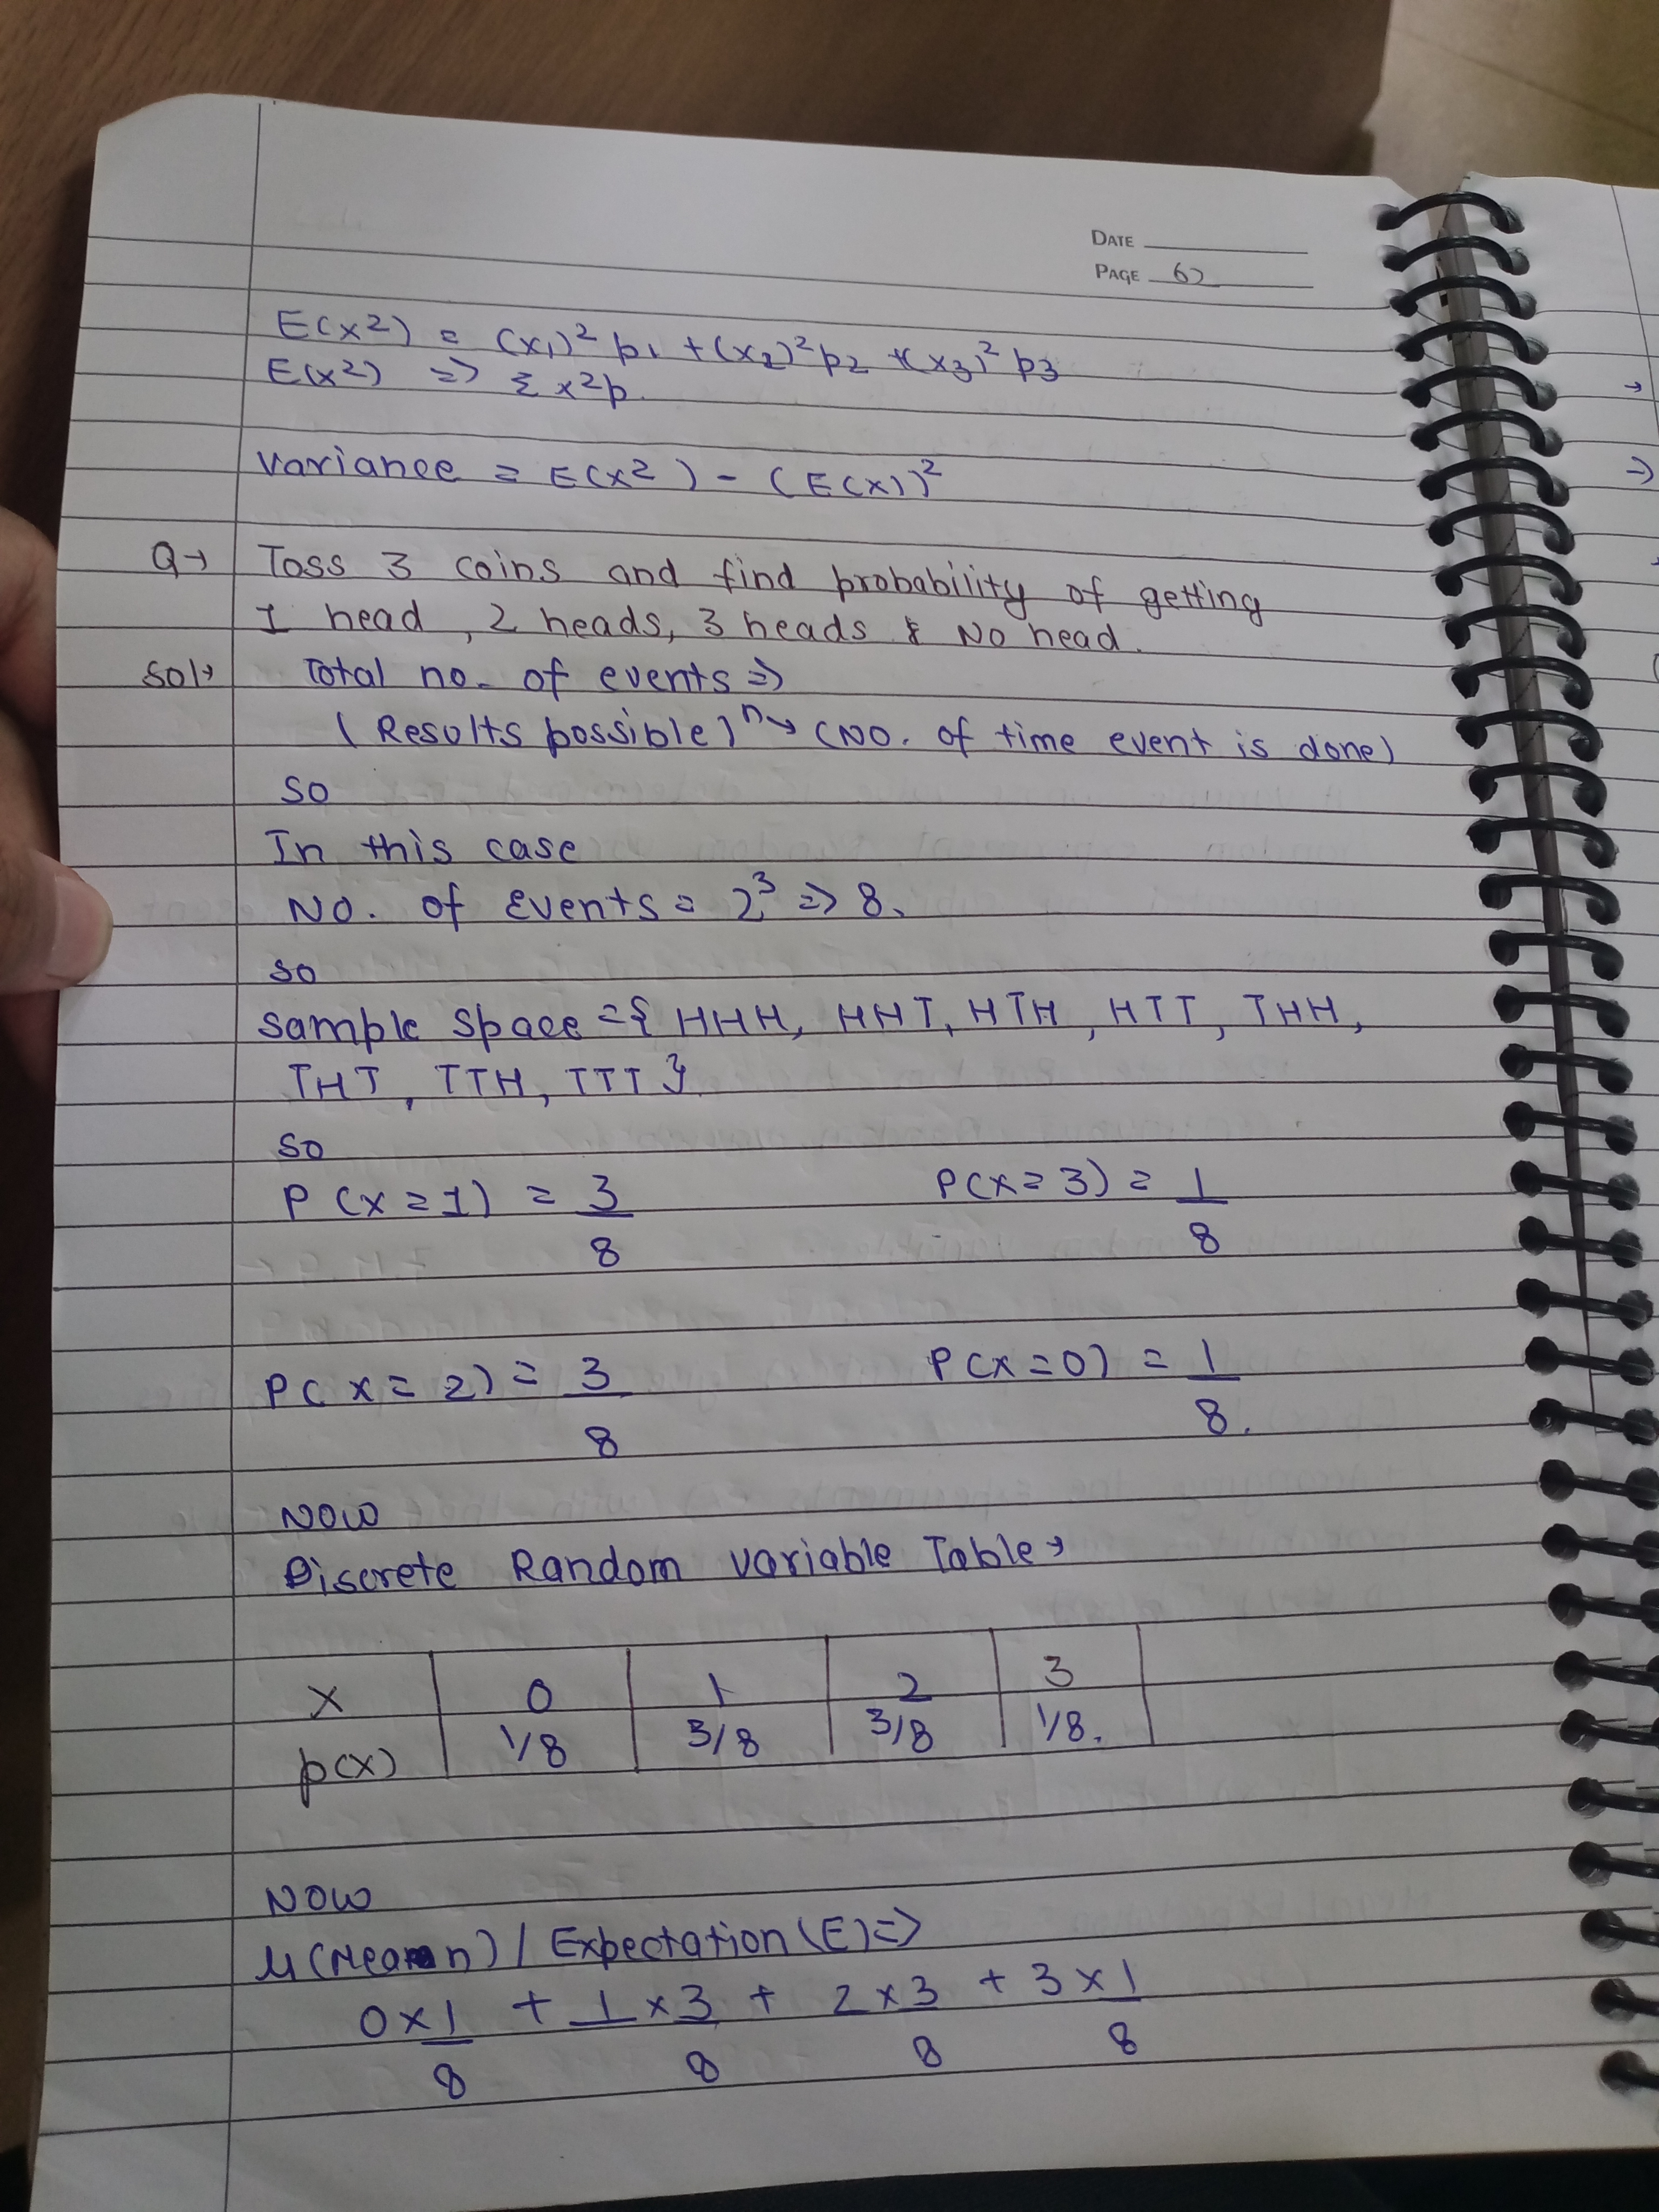 DATE
PAGE 62
E(x2) = (x1)² p1 + (x2)² p2 + (x3)² p3
E(x2) => Σ x2p.
variance = E(x2) - (E(x))²
Q→ Toss 3 coins and find probability of getting
1 head, 2 heads, 3 heads & No head.
Sol→ Total no. of events =>
(Results possible)ⁿ → (No. of time event is done)
so
In this case
No. of Events = 2³ => 8.
so
sample space = { HHH, HHT, HTH, HTT, THH,
THT, TTH, TTT }
so
P(x=1) = 3/8 P(x=3) = 1/8
P(x=2) = 3/8 P(x=0) = 1/8.
NOW
Discrete Random variable Table→
x 0 1 2 3
p(x) 1/8 3/8 3/8 1/8.
NOW
μ(Mean) / Expectation(E) =>
0×1/8 + 1×3/8 + 2×3/8 + 3×1/8